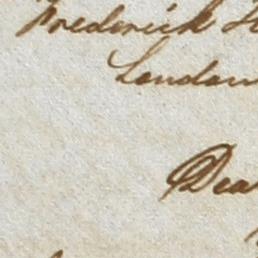 Frederick H
London
Dea